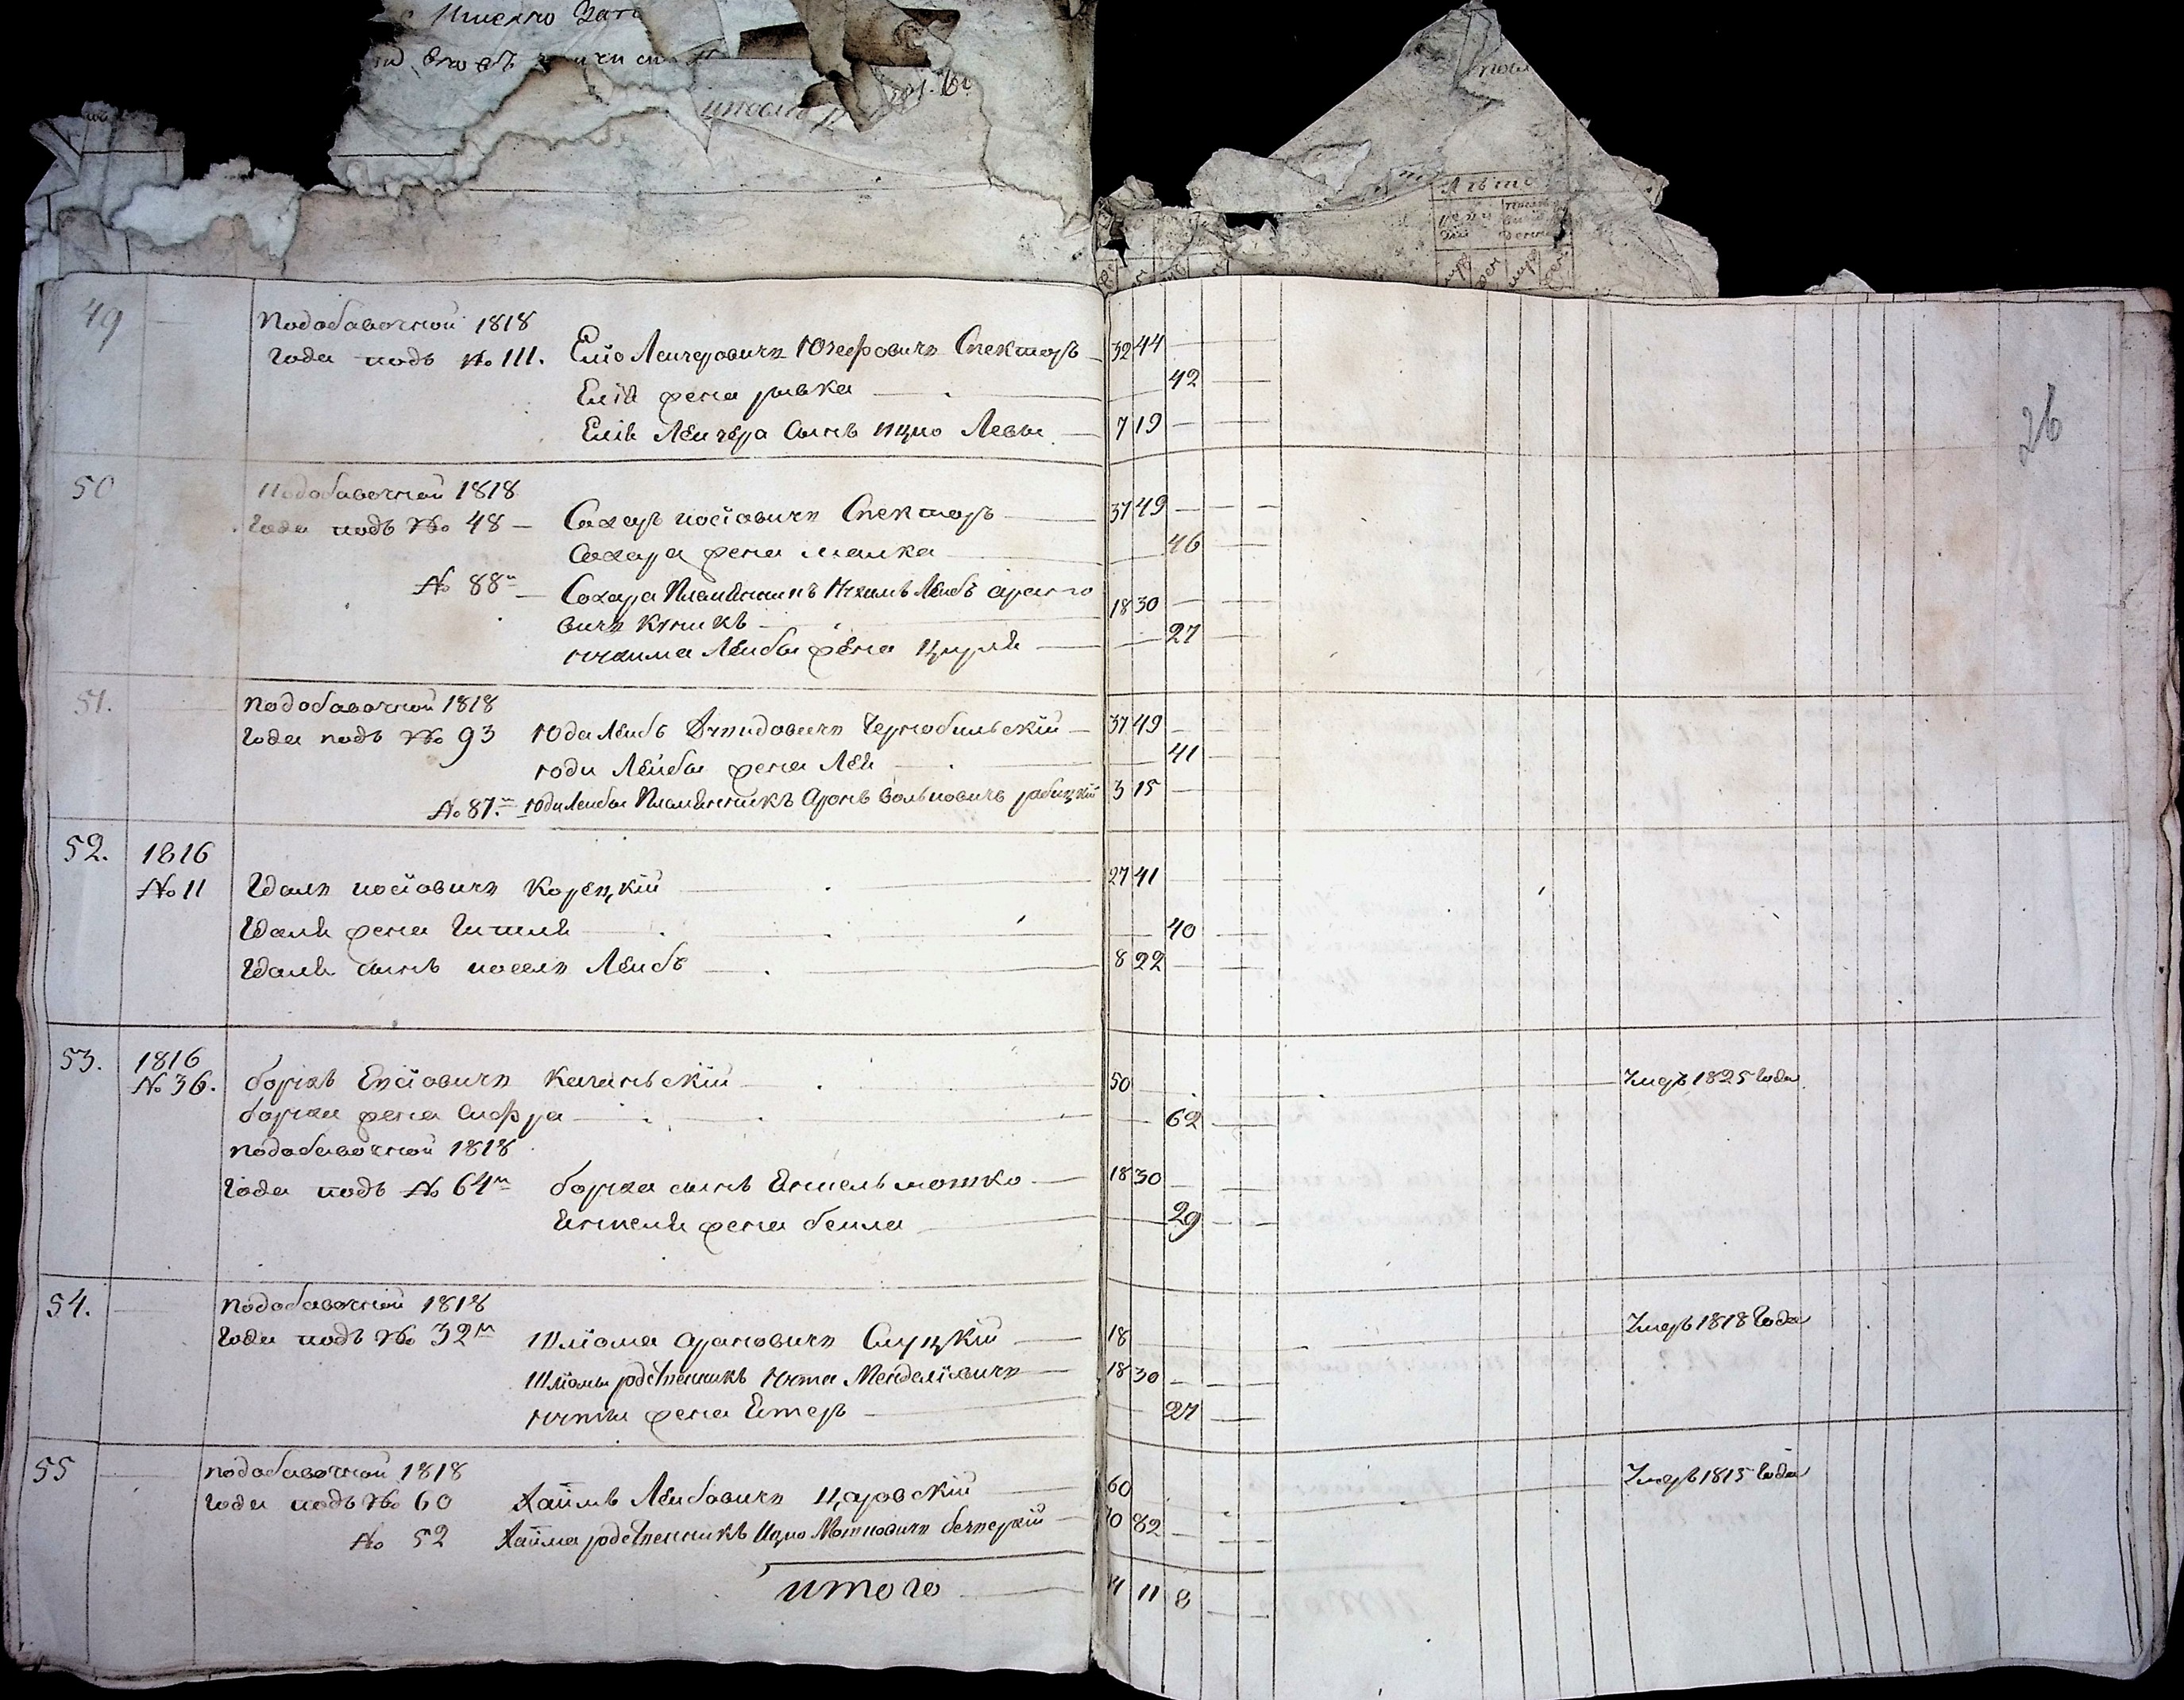 Именно
26
49 Подобавочной 1818
Года подъ № 111. Елiо Лейзеровичъ Юзефовичъ Спекторъ 32 44
Елiи жена ривка 42
Елiи Лейзера сынъ ицко Левы 7 19
50 Подобавочной 1818
Года подъ № 48 Сахаръ иосiовичъ Спекторъ 37 49
Сахара жена малка 46
№ 88м Сахара Племянникъ Нухимъ Лейбъ арано
вичъ 18 30
нухима Лейбы жена Цирля 27
51. подобавочной 1818
Года подъ № 93 Юда Лейбъ Чернобильскiй 37 49
юди Лейбы жена Лея 41
№ 87.м юди Лейбы Племянникъ Аронъ Вольковичъ рабицкiй 3 15
52. 1816
№ 11 Гдаль иосiовичъ Корецкiй 27 41
Гдали жена Гитля 40
Гдали сынъ иосель Лейбъ 8 22
53. 1816
№ 36. борихъ Еносiовичъ Качанскiй 50 Умеръ 1825 Года
борха жена Сифра 62
подобавочной 1818
Года подъ № 64м борха сынъ Янкель мошко 18 30
Янкеля жена бейла 29
54. подобавочной 1818
Года подъ № 32м Шлiома арановичъ Слуцкiй 18 Умеръ 1818 Года
Шлiомы родственникъ Нута Менделiовичъ 18 30
Нуты жена Естеръ 27
55 подобавочной 1818
Года подъ № 60 Хаимъ Лейбовичъ Царовскiй 60 Умеръ 1815 Года
№ 52 Хаима родственникъ Ицко Мошковичъ 70 82
итого 11 8